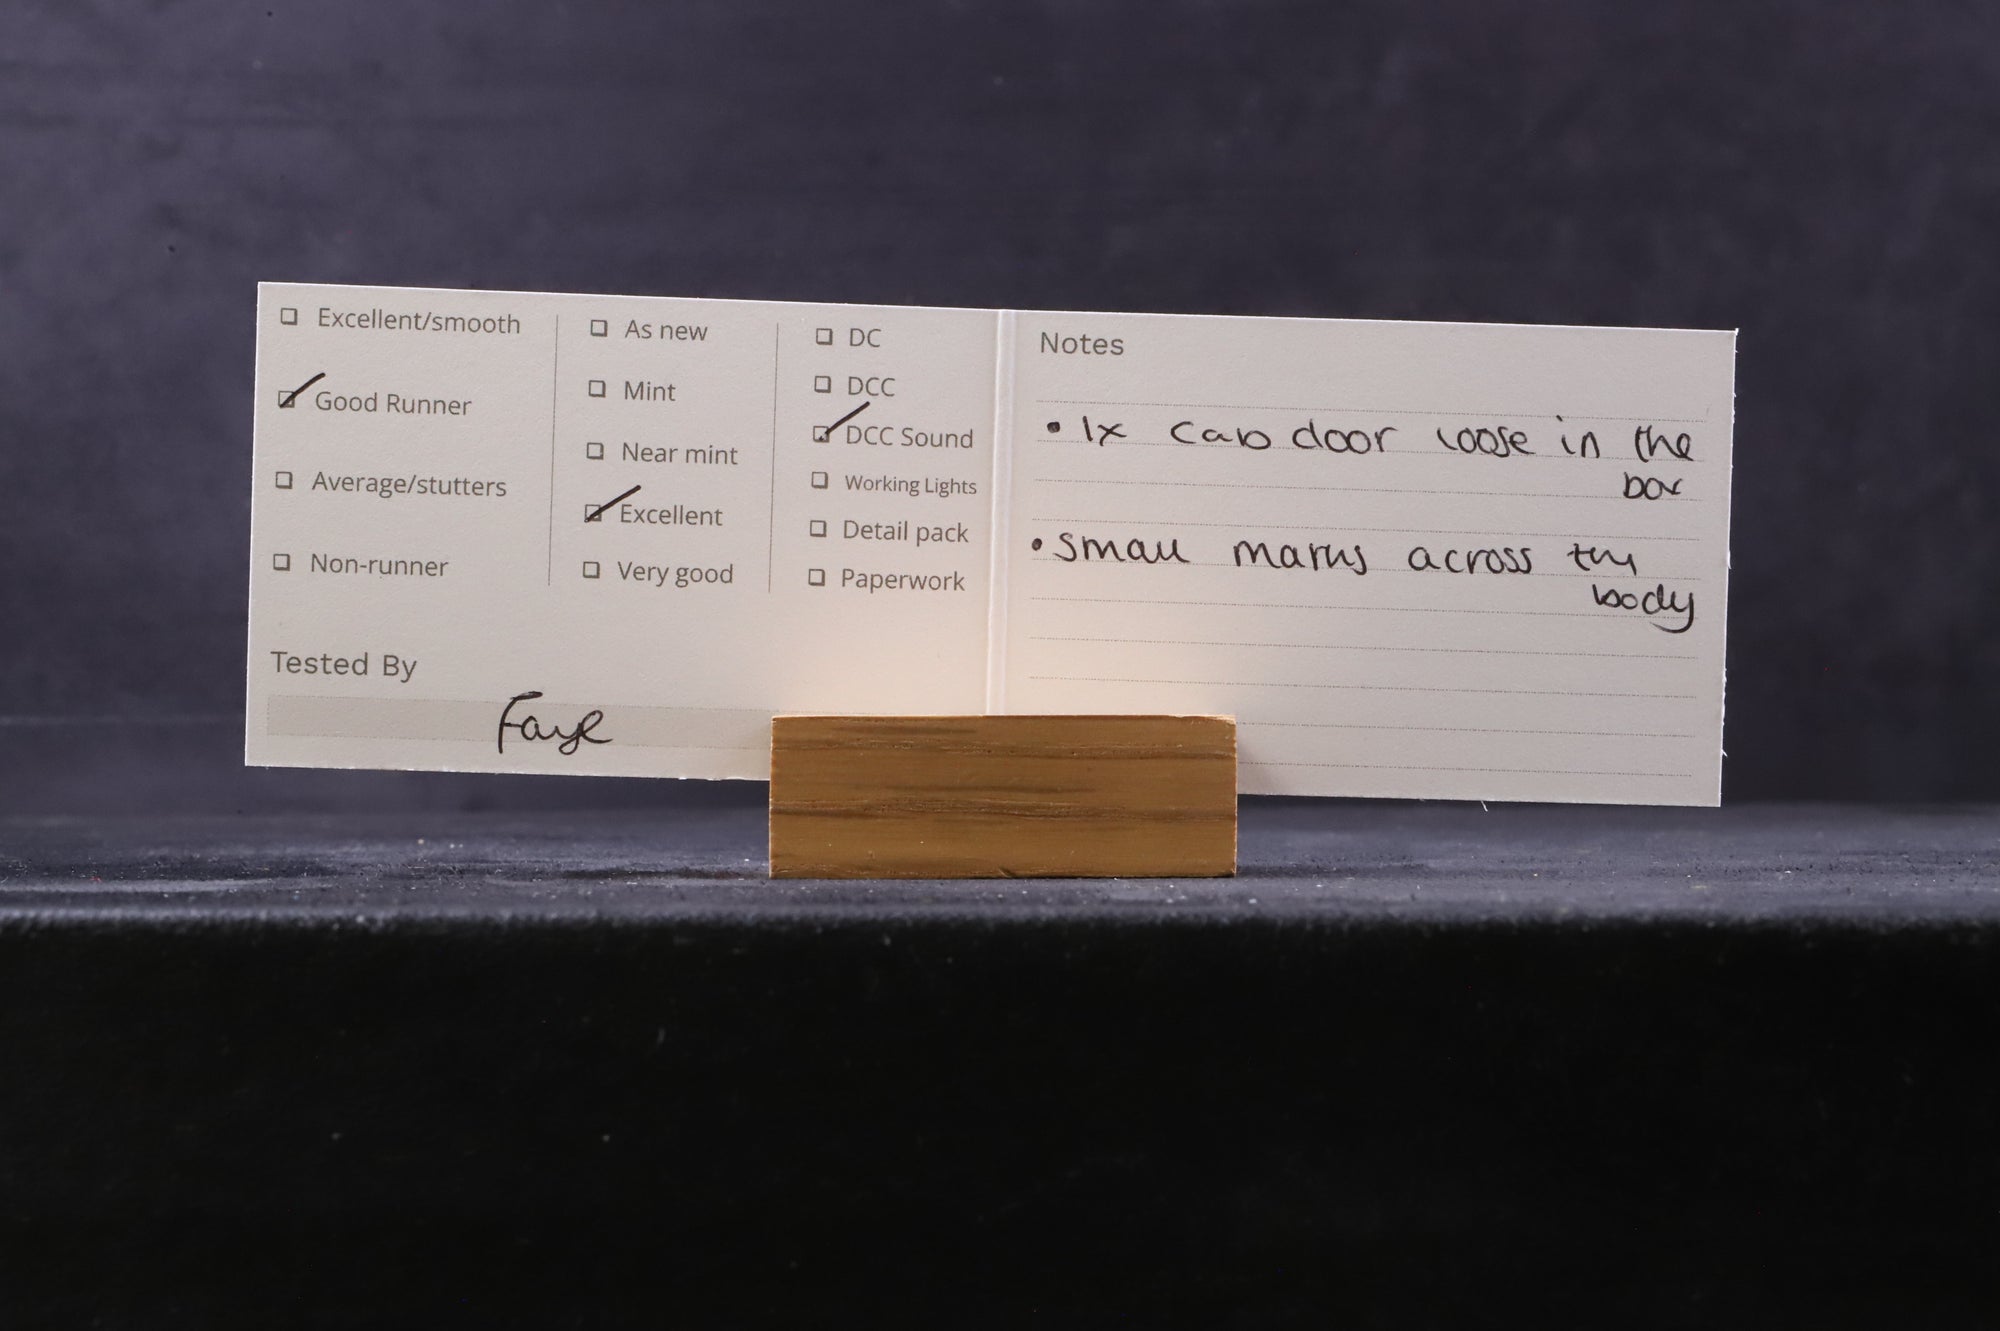 ☐ Excellent/smooth
☑ Good Runner
☐ Average/stutters
☐ Non-runner
☐ As new
☐ Mint
☐ Near mint
☑ Excellent
☐ Very good
☐ DC
☐ DCC
☑ DCC Sound
☐ Working Lights
☐ Detail pack
☐ Paperwork
Tested By
Faye
Notes
• 1x cab door loose in the
box
• small marks across the
body